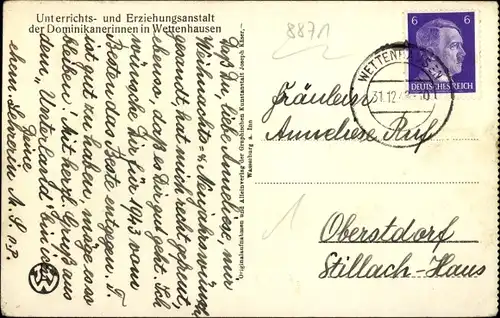 Unterrichts- und Erziehungsanstalt
der Dominikanerinnen in Wettenhausen
Daß Du, liebe Anneliese, mir
Weihnachts- u. Neujahrswünsche
gesandt, hat mich recht gefreut,
ebenso, daß es Dir gut geht. Ich
wünsche Dir für 1943 vom
Besten das Beste entgegen.
ist gut zu haben, möge es so
bleiben! Mit herzl. Gruß aus
dem „Unterland"
Deine
ehem. Lehrerin M. S. O.P.
Originalaufnahme und Alleinverlag der Graphischen Kunstanstalt Joseph
Wasserburg a. Inn
8871
WETTENHAUSEN
31.12.4
6 6
DEUTSCHES REICH
Fräulein
Anneliese Ruf
1
Oberstdorf
Stillach-Haus